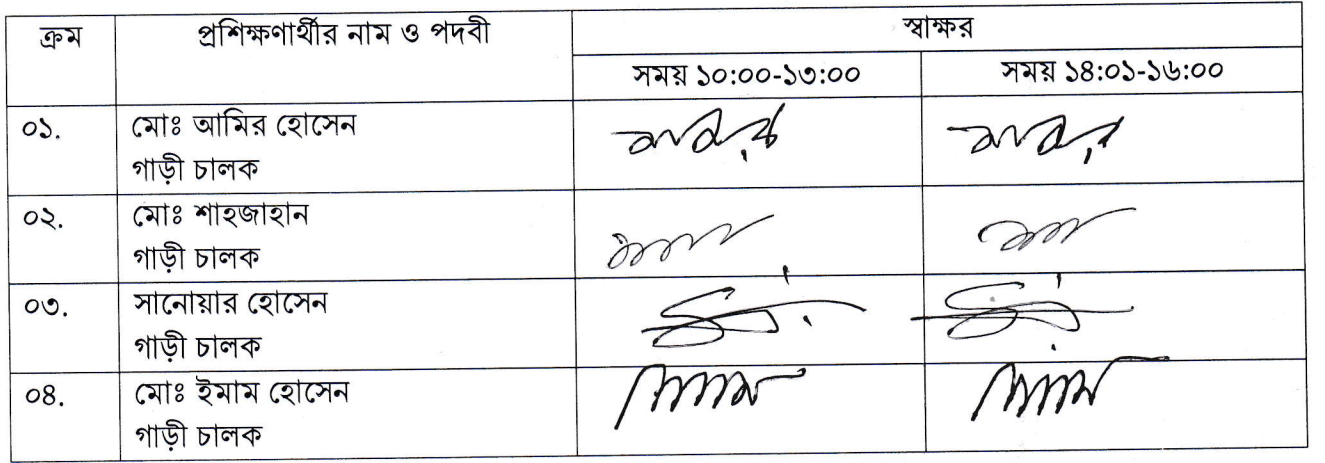 ক্রম
প্রশিক্ষণার্থীর নাম ও পদবী
স্বাক্ষর
সময় ১০:০০-১৩:০০
সময় ১৪:০১-১৬:০০
০১.
মোঃ আমির হোসেন
গাড়ী চালক
০২.
মোঃ শাহজাহান
গাড়ী চালক
০৩.
সানোয়ার হোসেন
গাড়ী চালক
০৪.
মোঃ ইমাম হোসেন
গাড়ী চালক